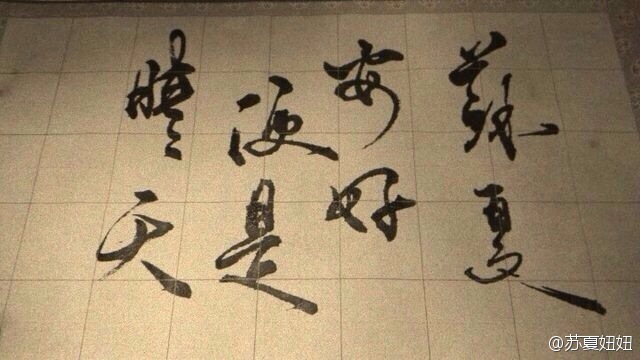 蘇夏
安好
便是
晴天
@苏夏妞妞